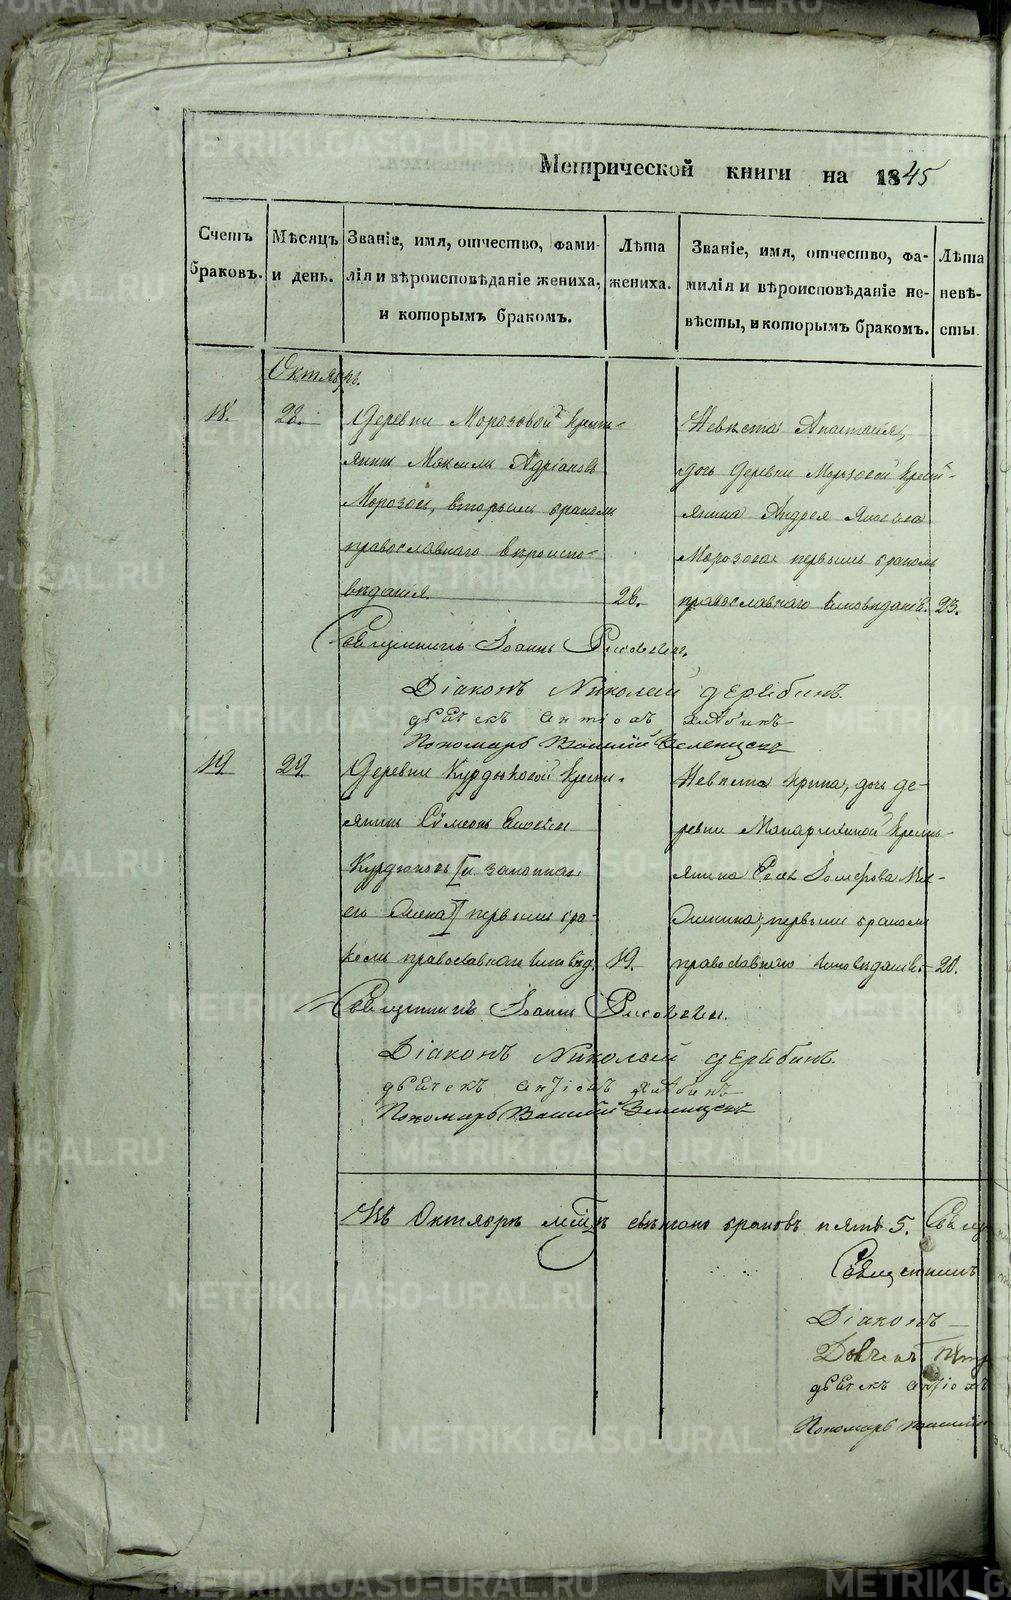 Метрической книги на 1845
Счетъ браковъ.
Мѣсяцъ и день.
Званіе, имя, отчество, фами-
лія и вѣроисповѣданіе жениха,
и которымъ бракомъ.
Лѣта
жениха.
Званіе, имя, отчество, фа-
милія и вѣроисповѣданіе не-
вѣсты, и которымъ бракомъ.
Лѣта
невѣ-
сты.
Октябрь.
18. 28.
Деревни Морозовой крест-
янинъ Максимъ Адріановъ
Морозовъ, вторымъ бракомъ
православнаго вѣроиспо-
вѣданія.
28.
Невѣста Анастасія,
дочь деревни Морозовой крест-
янина Андрея
Морозова первымъ бракомъ
православнаго исповѣданія.
23.
Священникъ Іоаннъ
Діаконъ Николай Дерябинъ
дьячекъ
Пономарь Василій Селенцевъ
19 29.
Деревни Курдюковой крест-
янинъ Сѵмеонъ
Курдюковъ
его первымъ бра-
комъ православнаго исповѣд.
19.
Невѣста Ирина, дочь де-
ревни крестъ-
янина
первымъ бракомъ
православнаго исповѣданія
20.
Священникъ Іоаннъ
Діаконъ Николай Дерябинъ.
дьячекъ
Пономарь Василій Селенцевъ
Въ Октябрѣ мцѣ браковъ пять 5.
Священникъ
Діаконъ
дьячекъ
Пономарь Василій
METRIKI.GASO-URAL.RU